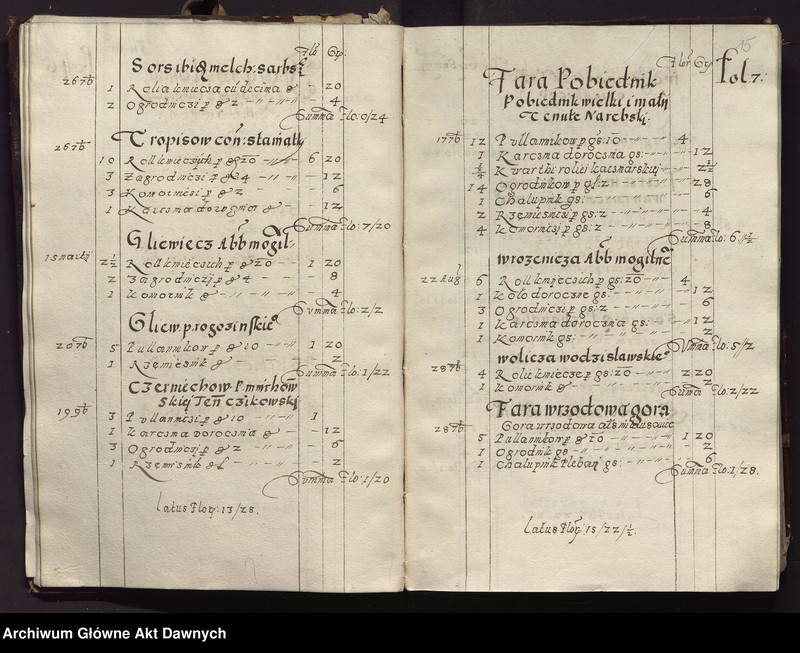 Flo Gr:
Sors ibidē melch: sarbsꝭ
26 7b 1 Rolia kmiecsa cū decima gs — 20
2 Ogrodniczi p gs 2 — 4
Summa Flo: 0/24
Tropisow con: stamatꝭ
26 7b
10 Roll kmieczych p gs 20 — 6 20
3 Zagrodniczi p gs 4 — 12
3 Komornici p gs 2 — 6
1 Karcsma doroczna gs — 12
Summa Flo: 7/20
Gliewiecz Abb mogil:
15 martij 2½ Roll kmiecsich p gs 20 — 1 20
2 Zagrodniczi p gs 4 — 8
1 Komornik gs — 4
Summa Flo: 2/2
Gliew. p. rogozinskie
20 7b 5 Pullanikow p gs 10 — 1 20
1 Rzemiesnik gs — 2
Summa Flo: 1/22
Czerniechow P.
skiej Ten Czikowskj
19 9b 3 Pullannicsi p gs 10 — 1
1 Karcsma Dorocsnia gs — 12
3 Ogrodnicsj p gs 2 — 6
1 Rzemisnik gs — 2
Summa Flo: 1/20
Latus Flor: 13/28.
15
Flor Gr
fol 7.
Fara Pobiednik
Pobiednik wielki i małij
Tenute Narebskj.
17 7b 12 Pullannikow p gs: 10 — 4
1 Karcsma dorocsna gs: — 12
¼ Kwarthi roliei kacsmarskiej — 2½
14 Ogrodnikow p gs: 2 — 28
1 Chalupnik gs: — 6
2 Rzemiesnicsj p gs: 2 — 4
4 Komornicj p gs: 2 — 8
Summa Flo: 6/½
wrozenicza Abb mogilnē
22 Aug 6 Roll kmjecsich p gs: 20 — 4
1 Kolo doroczne gs: — 12
3 Ogrodnicsi p gs: 2 — 6
1 Karcsma dorocsna gs: — 12
1 Komornik gs: — 2
Summa Flo: 5/2
wolicza wodzislawskie
28 7b 4 Roli kmiecze p gs: 20 — 2 20
1 Komornik gs — 2
Suma Flo: 2/22
Fara wrzodowa gora
Gora wrzodowa
28 7b
5 Pullanikow p gs 20 — 1 20
1 Ogrodnik gs — 2
1 Chalupnik Plebanj gs: — 6
Summa Flo: 1/28.
Latus Flor: 15/22/½.
Archiwum Główne Akt Dawnych